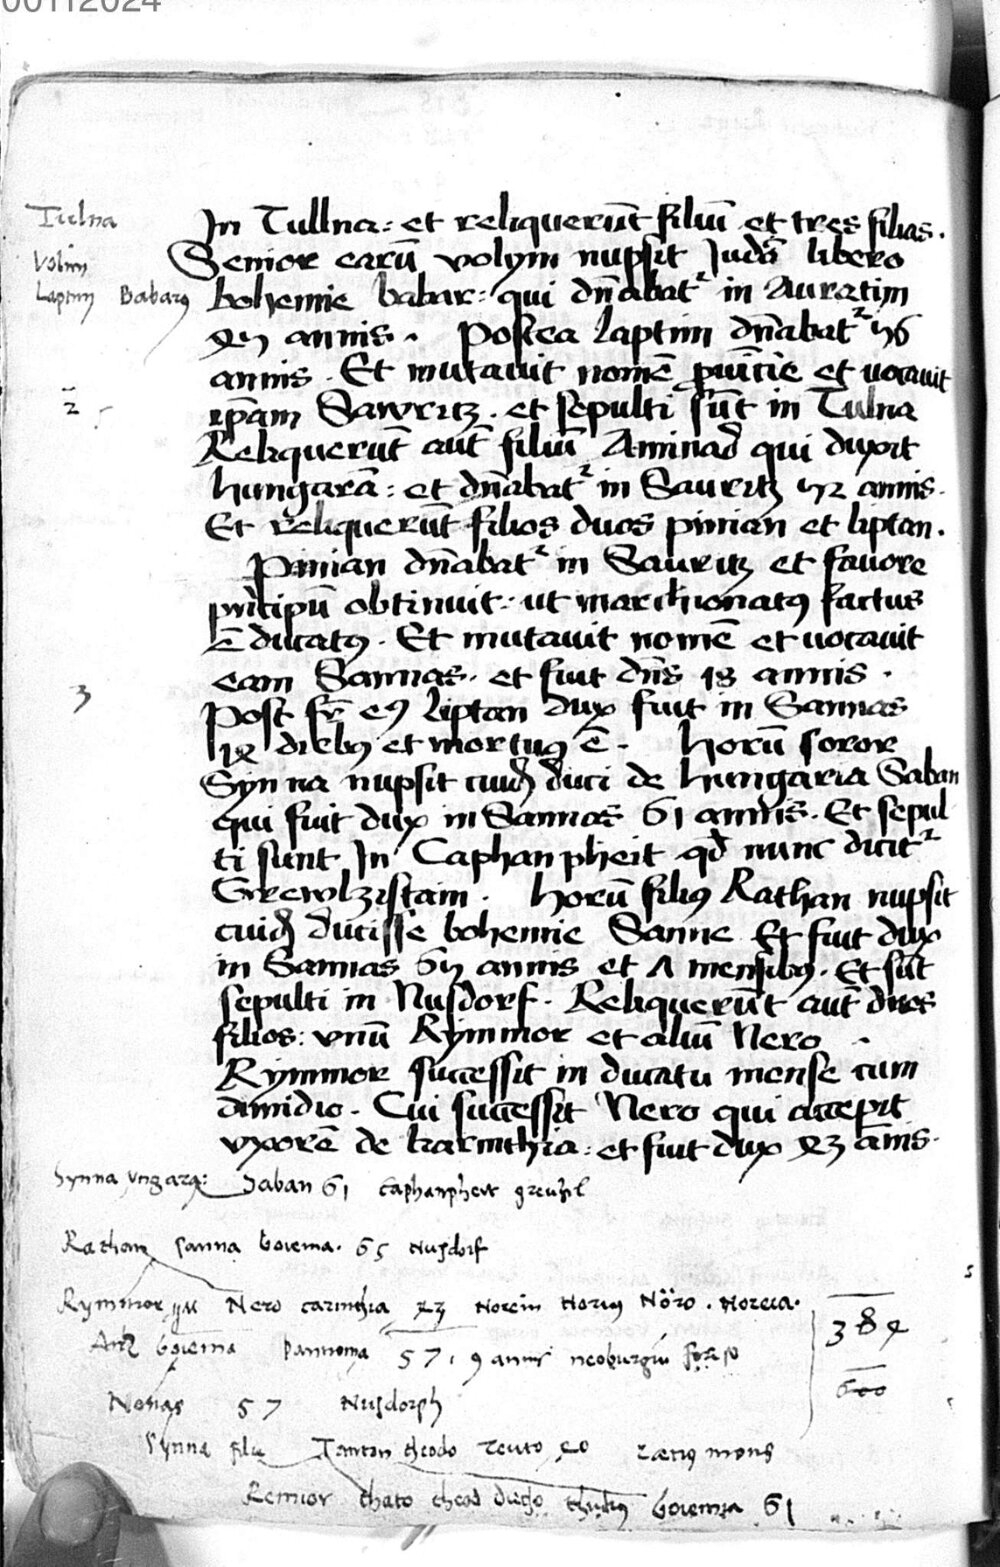 00112024
In Tullna: et reliquerūt filiū et tres filias.
Tulna
Senior earū volym nupsit Judō libero
Volim
bohemie babar: qui dn̄abatᷣ in Auratim
Laptim Babarꝯ
annis. Postea laptim dn̄abatᷣ
annis. Et mutavit nomē ꝓvīcie et vocavit
ip̄am Sawritz. et sepulti sūt in Tulna
2
Reliquerūt aut̄ filiū Aminad qui duxit
hungarā: et dn̄abatᷣ in Sauritz 42 annis.
Et reliquerūt filios duos pinian et liptan.
Pinian dn̄abatᷣ in Sauritz et favore
principū obtinuit: ut marchionatꝯ factus
ē ducatꝯ. Et mutavit nomē et vocavit
eam Sannas. et fuit dn̄s 18 annis.
3
Post fr̄ eꝯ liptan dux fuit in Sannas
diebꝯ et mortuꝯ ē. Horū soror
Synna nupsit cuidā duci de hungaria Saban
qui fuit dux in Sannas 61 annis. Et sepul
ti sunt In Caphanpheit qd̄ nunc dicitᷣ
Grewlzistain. Horū filiꝯ Rathan nupsit
cuidā ducisse bohemie Sanne Et fuit dux
in Sannas annis et Λ mensibꝯ. Et sūt
sepulti in Nusdorf. Reliquerūt aut̄ dues
filios: vnū Rymmor et aliū Nero
Rymmor successit in ducatu mense cum
dimidio. Cui successit Nero qui accepit
vxorē de karinthia: et fuit dux an̄is.
Synna vngara: Saban 61 Caphanpheit greuzil
Rathan Sanna boiema. 65 Nusdorf
Rymmor Nero carinthia Norein Noriꝯ Nöro. Noreia.
384
boiema Pannonia 57. 9 annis neoburgii
600
Nonas 57 Nusdorph
Synna filii Tantan theodo Teuto 40 mons
Remior thato theod boiemia 61